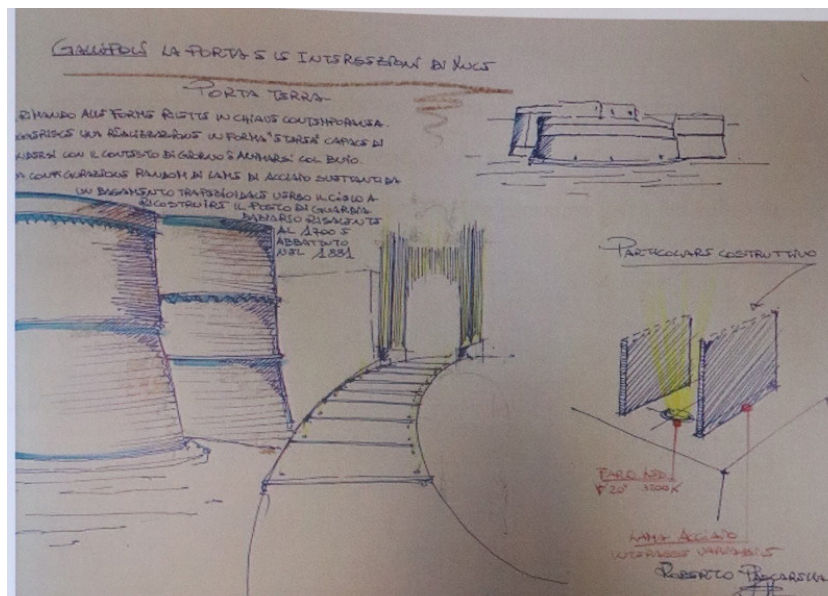 GALLIPOLI LA PORTA E LE INTERSEZIONI DI LUCE
PORTA TERRA
RIMANDO ALLE FORME RILETTE IN CHIAVE CONTEMPORANEA.
UNA REALIZZAZIONE IN FORMA "ETEREA" CAPACE DI
CON IL CONTESTO DI GIORNO E ANIMARSI COL BUIO.
CONFIGURAZIONE RANDOM DI LAME DI ACCIAIO DA
UN BASAMENTO TRAPEZOIDALE VERSO IL CIELO A
RICOSTRUIRE IL POSTO DI GUARDIA
DAZIARIO RISALENTE
AL 1700 E
ABBATTUTO
NEL 1881
PARTICOLARE COSTRUTTIVO
FARO LED
20° 3200K
LAMA ACCIAIO
INTERASSE VARIABILE
ROBERTO